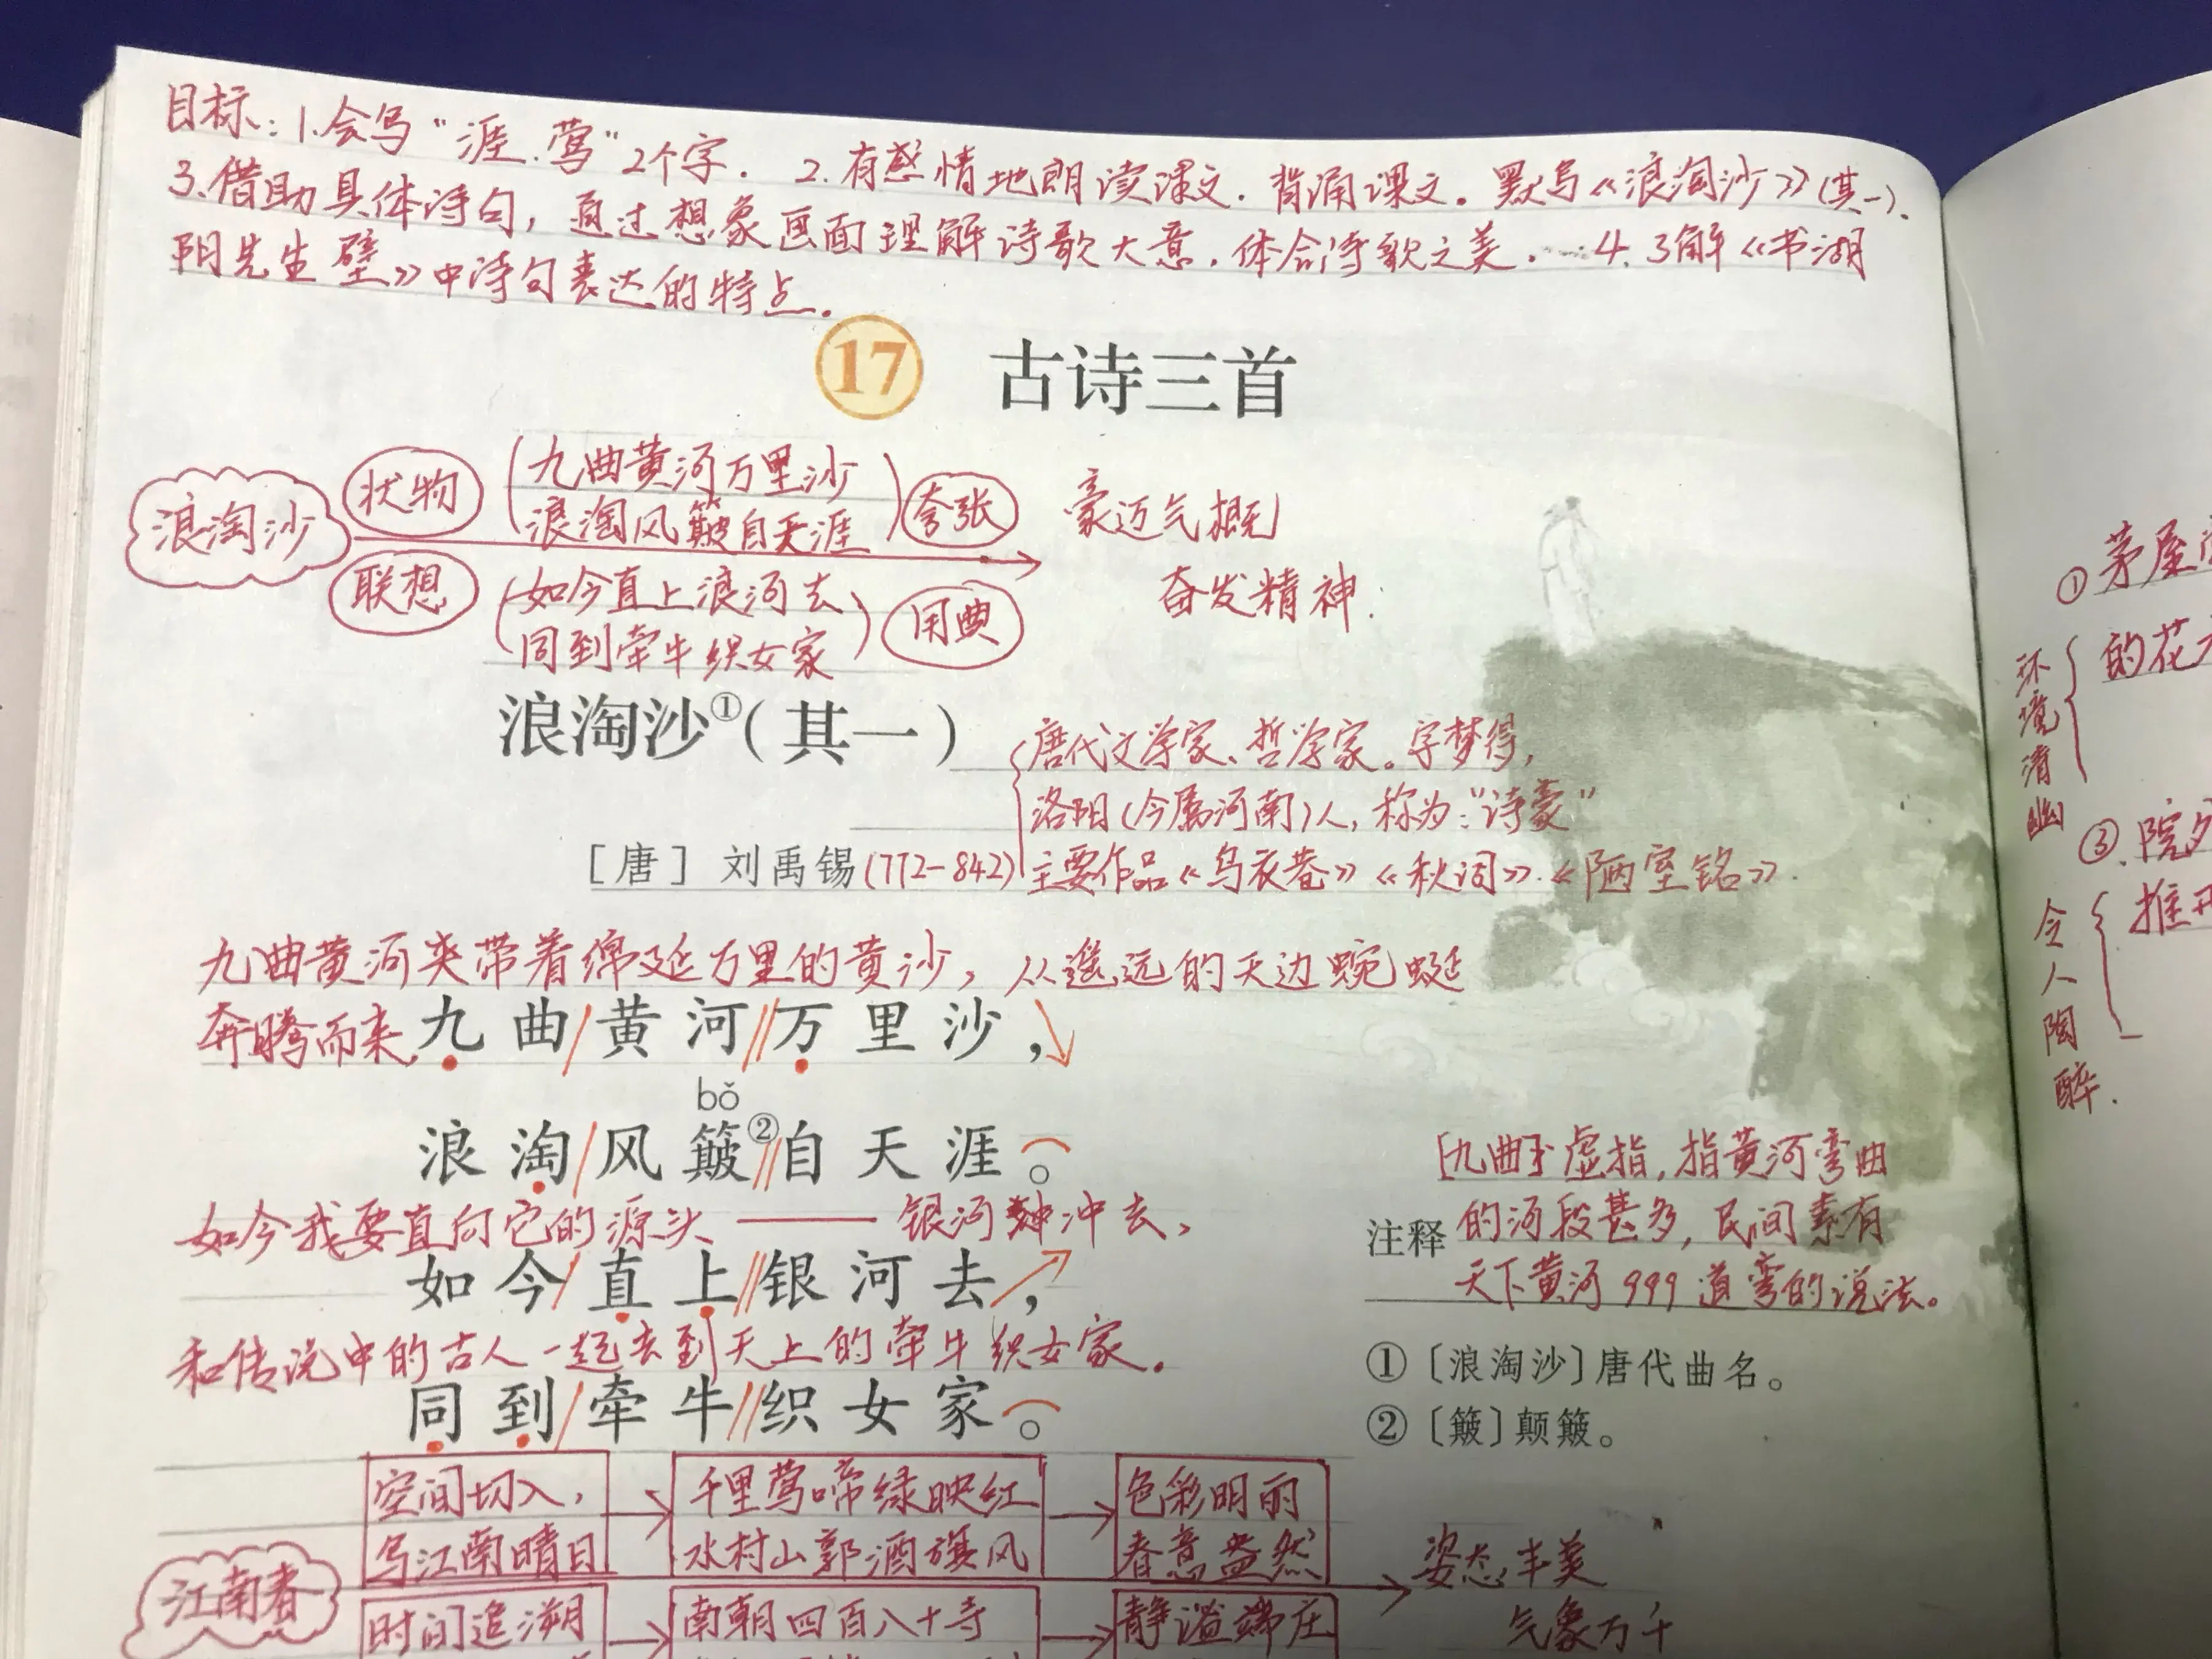 目标：1.会写“涯.莺”2个字． 2.有感情地朗读课文．背诵课文。默写《浪淘沙》(其一).
3.借助具体诗句，通过想象画面理解诗歌大意．体会诗歌之美．4.了解《书湖
阴先生壁》中诗句表达的特点．
17 古诗三首
浪淘沙
状物
九曲黄河万里沙
浪淘风簸自天涯
夸张
联想
如今直上浪河去
同到牵牛织女家
用典
豪迈气概
奋发精神．
浪淘沙①（其一）
唐代文学家、哲学家。字梦得，
洛阳(今属河南)人，称为：“诗豪”
［唐］ 刘禹锡(772-842) 主要作品《乌衣巷》《秋词》.《陋室铭》.
九曲黄河夹带着绵延万里的黄沙，从遥远的天边蜿蜒
奔腾而来.
九曲/黄河//万里沙，
bǒ
浪淘/风簸②//自天涯。
如今我要直向它的源头——银河 冲去，
如今/直上//银河去，
和传说中的古人一起去到天上的牵牛织女家．
同到/牵牛//织女家。
[九曲] 虚指，指黄河弯曲
注释 的河段甚多，民间素有
天下黄河999道弯的说法。
①〔浪淘沙〕唐代曲名。
②〔簸〕颠簸。
江南春
空间切入，
写江南晴日
千里莺啼绿映红
水村山郭酒旗风
色彩明丽
春意盎然
时间追溯
南朝四百八十寺
静谧端庄
姿态丰美
气象万千
①茅屋
的花
环境清幽
③.院
推开
令人陶醉．